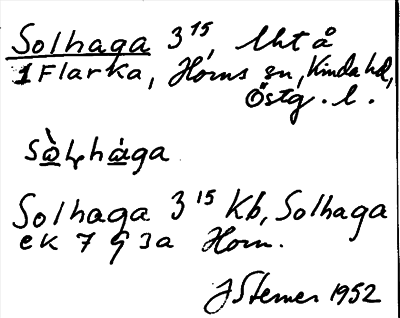 Solhaga 3¹⁵, lht å
1 Flarka, Horns sn, Kinda hd,
Östg. l.
sò̱lhá̱ga
Solhaga 3¹⁵ Kb, Solhaga
ek 7 G 3a Horn.
J Sterner 1952